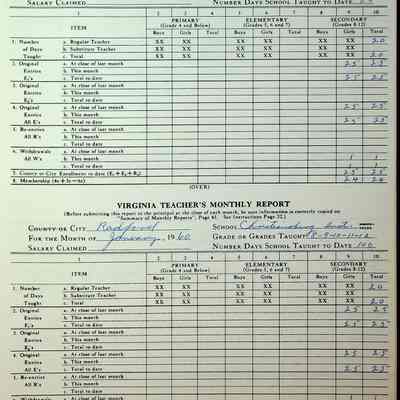 SALARY CLAIMED NUMBER DAYS SCHOOL TAUGHT TO DATE
1 2 3 4 5 6 7 8 9 10
ITEM PRIMARY (Grade 4 and Below) ELEMENTARY (Grades 5, 6 and 7) SECONDARY (Grades 8-12)
Boys Girls Total Boys Girls Total Boys Girls Total
1. Number a. Regular Teacher XX XX XX XX XX XX 20
of Days b. Substitute Teacher XX XX XX XX XX XX
Taught: c. Total XX XX XX XX XX XX 20
2. Original a. At close of last month 25 25
Entries b. This month
E1's c. Total to date 25 25
3. Original a. At close of last month
Entries b. This month
E2's c. Total to date
4. Original a. At close of last month 25 25
Entries b. This month
All E's c. Total to date 25 25
5. Re-entries a. At close of last month
All R's b. This month
c. Total to date
6. Withdrawals a. At close of last month
All W's b. This month 1 1
c. Total to date 1 1
7. County or City Enrollment to date (E1+E2+R2) 25 25
8. Membership (4c+5c-6c) 24 24
(OVER)
VIRGINIA TEACHER'S MONTHLY REPORT
(Before submitting this report to the principal at the close of each month, be sure information is correctly copied on
"Summary of Monthly Reports", Page 41. See Instructions Page 32.)
COUNTY OR CITY Radford SCHOOL Christiansburg Inst.
FOR THE MONTH OF January, 1960 GRADE OR GRADES TAUGHT
SALARY CLAIMED NUMBER DAYS SCHOOL TAUGHT TO DATE 100
1 2 3 4 5 6 7 8 9 10
ITEM PRIMARY (Grade 4 and Below) ELEMENTARY (Grades 5, 6 and 7) SECONDARY (Grades 8-12)
Boys Girls Total Boys Girls Total Boys Girls Total
1. Number a. Regular Teacher XX XX XX XX XX XX 20
of Days b. Substitute Teacher XX XX XX XX XX XX
Taught: c. Total XX XX XX XX XX XX 20
2. Original a. At close of last month 25 25
Entries b. This month
E1's c. Total to date 25 25
3. Original a. At close of last month
Entries b. This month
E2's c. Total to date
4. Original a. At close of last month 25 25
Entries b. This month
All E's c. Total to date 25 25
5. Re-entries a. At close of last month
All R's b. This month
c. Total to date